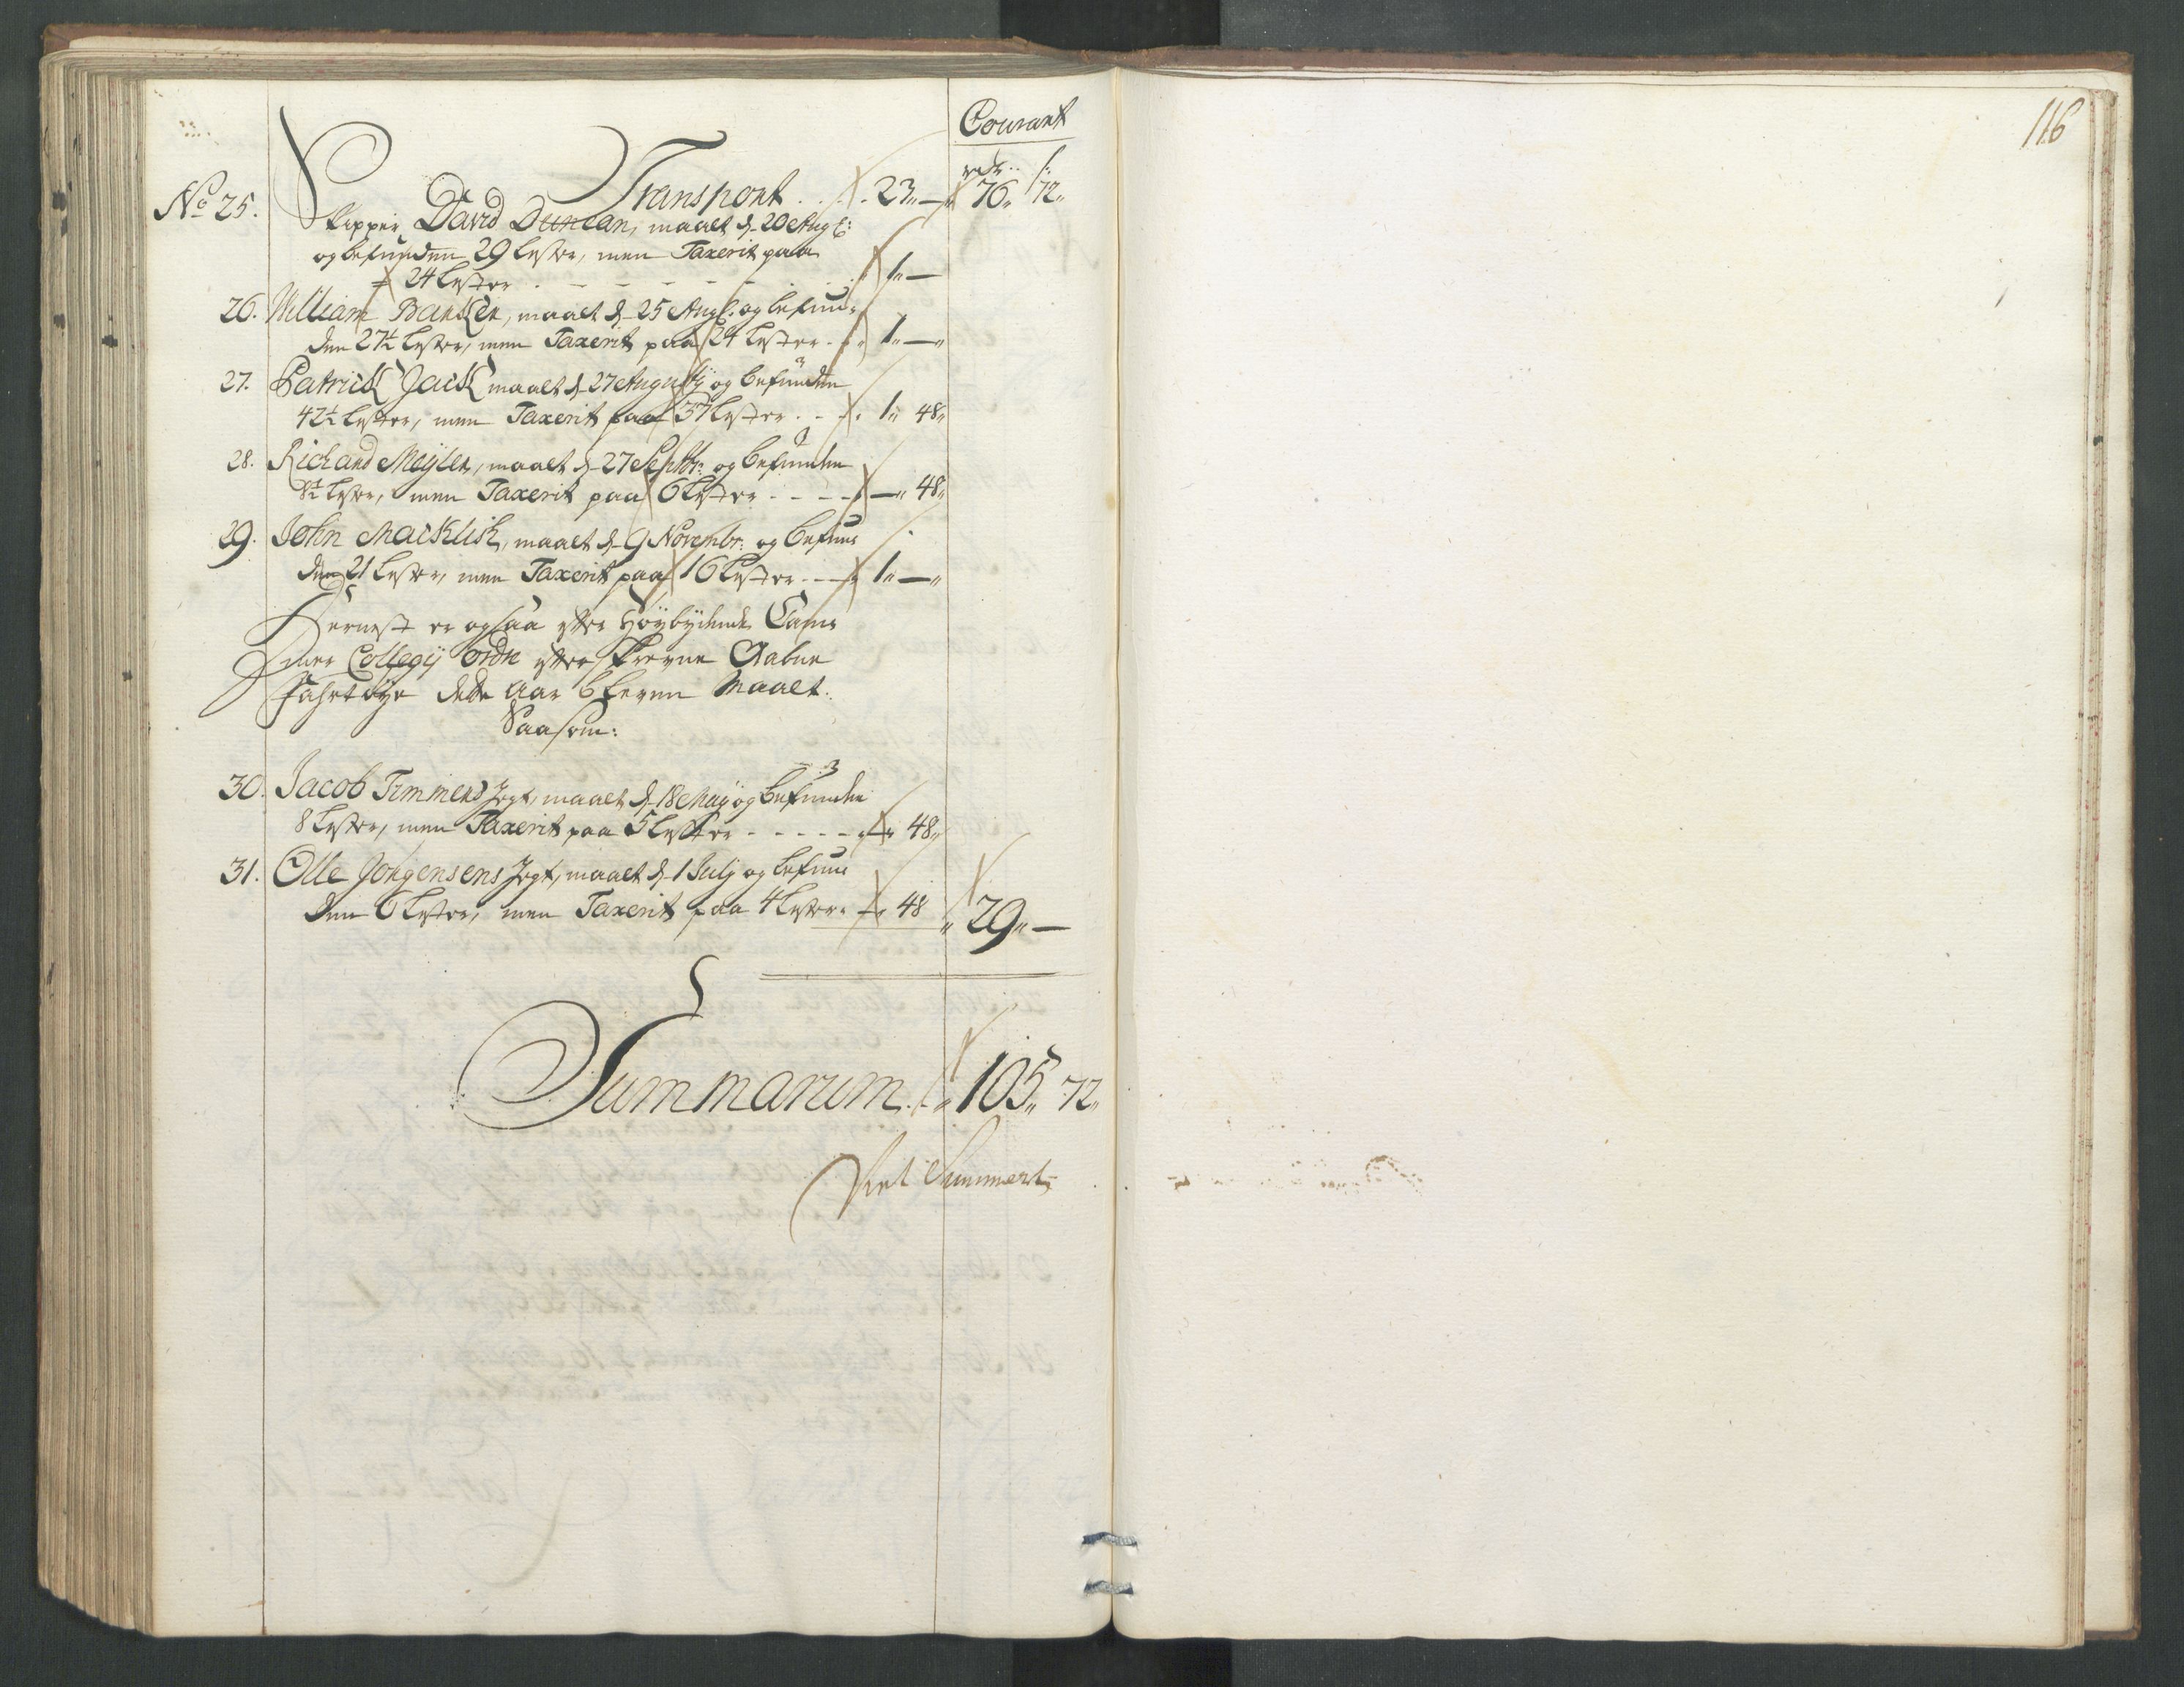 Courant
rdr. s:
Transport . . . 23„ — 76„ 72„
No 25. Skipper David Duncan, maalt d. 20 Aug:
og befunden 29 lester, men Taxerit paa
24 lester . - - - - - „ 1„ —
26. William Banken, maalt d. 25 Aug: og befun-
den 27½ lester, men Taxerit paa 24 lester . . „ 1„ —„
27. Patrick Jack maalt d. 27 Augusty og befunden
42½ lester, men Taxerit paa 37 lester . - . 1„ 48„
28. Richard Meyler, maalt d. 27 Septbr: og befunden
8½ lester, men Taxerit paa 6 lester . - - - —„ 48„
29. John Macklish, maalt d. 9 Novembr: og befun-
den 21 lester, men Taxerit paa 16 lester . - - „ 1„ —„
Dernest er ogsaa efter Høybydende Cam-
mer Collegij Ordre efterskrevne Aabne
Fahrtøye dette Aar bleven Maalt.
Saasom:
30. Jacob Timmens Jegt, maalt d. 18 May og befunden
8 lester, men Taxerit paa 5 lester - - - - - „ — 48„
31. Olle Jørgensens Jegt, maalt d. 1 July og befun-
den 6 lester, men Taxerit paa 4 lester. — 48 „ 29„ —
Summarum . . „ 105„ 72„
116